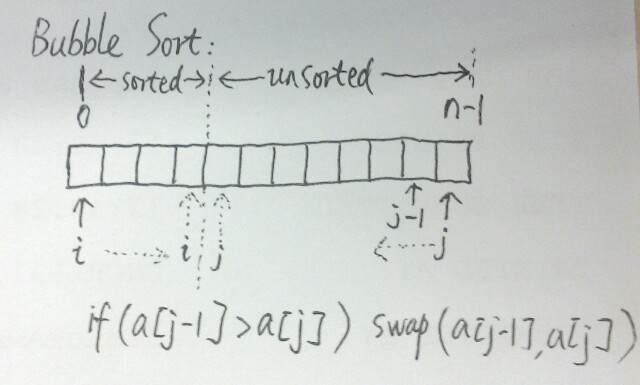 Bubble Sort:
sorted unsorted
0 n-1
j-1
i i j j
if (a[j-1] > a[j]) swap(a[j-1], a[j])